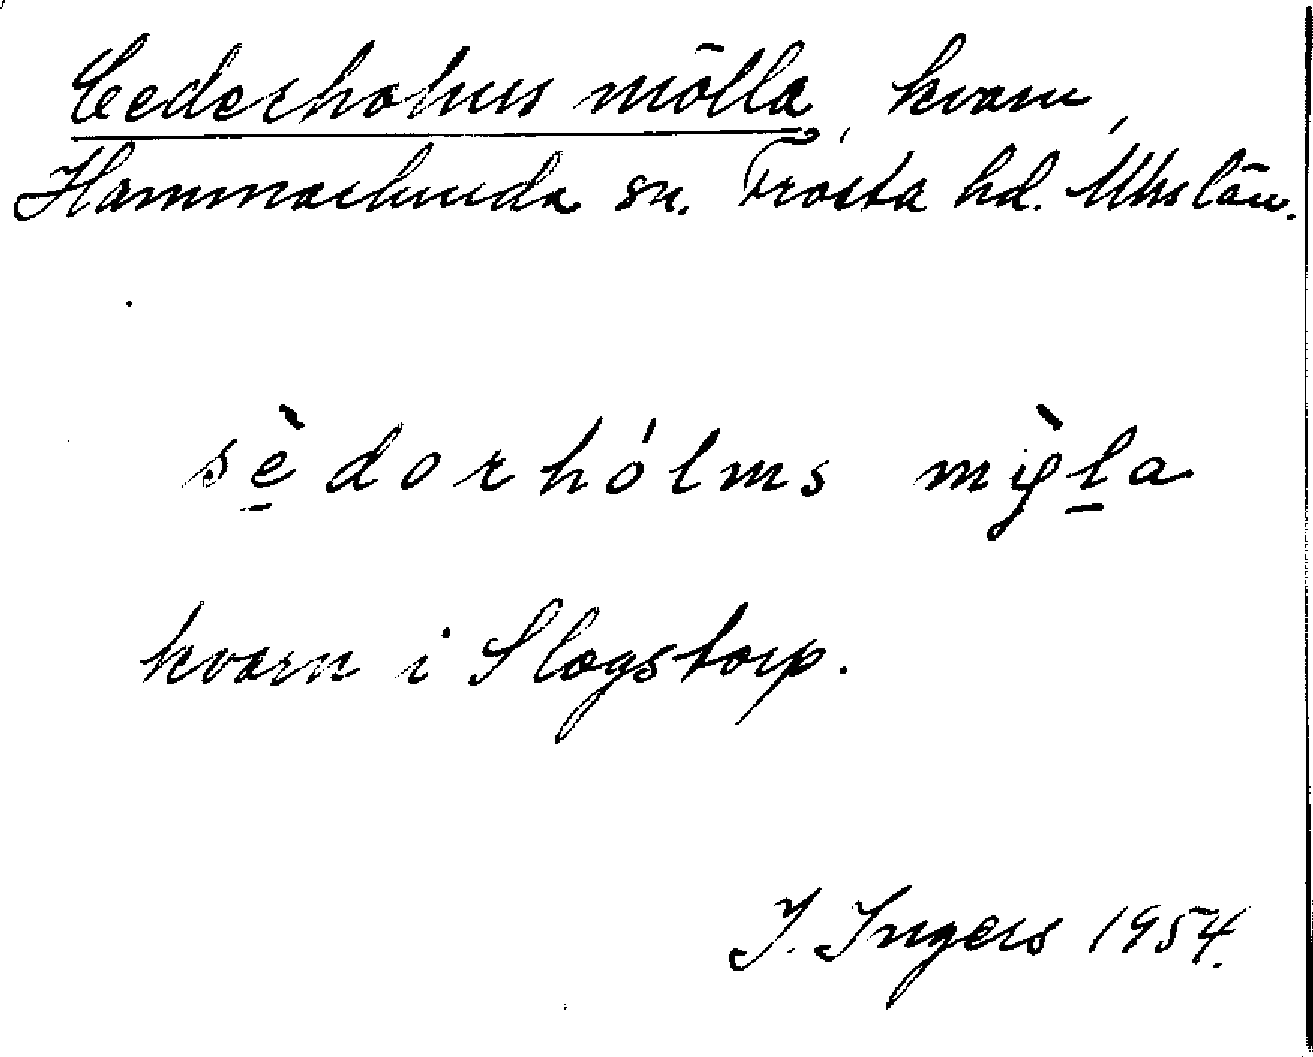 Cederholms mölla, kvarn,
Hammarlunda sn. Frosta hd. Mhs län.
sèdorhólms
kvarn i Slogstorp.
I. Ingers 1954.